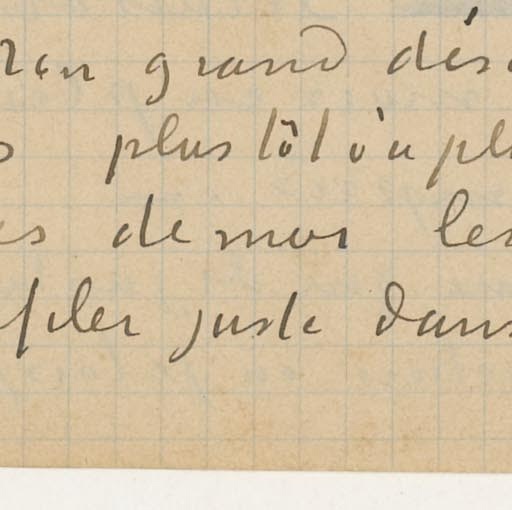 grand dés
plus tôt ou pl
es de moi les
filer juste dans